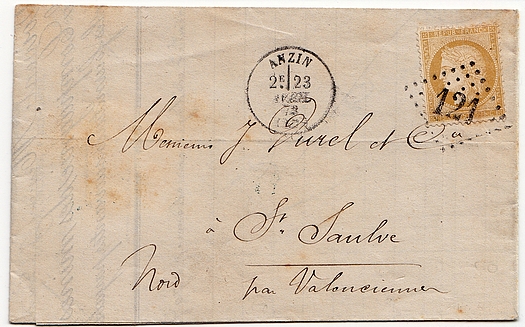 ANZIN
2E 23
73
REPUB. FRANC.
121
Messieurs J. Durel et Cie à
à St. Saulve
Nord par Valenciennes